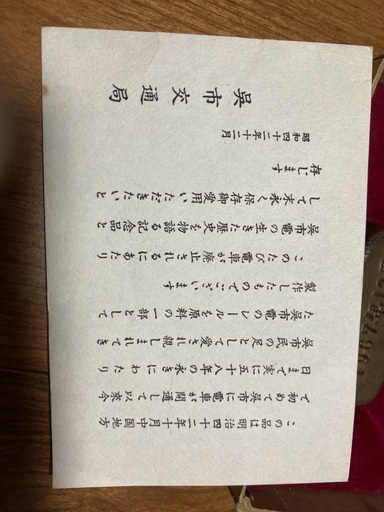 この品は明治四十二年十月中国地方
で初めて呉市に電車が開通して以来今
日まで実に五十八年の永きにわたり
呉市民の足として愛され親しまれてき
た呉市電のレールを原料の一部として
製作したものでございます
このたび電車が廃止されるにあたり
呉市電の生きた歴史を物語る記念品と
して末永く保存御愛用いただきたいと
存じます
昭和四十二年十二月
呉市交通局
1967年